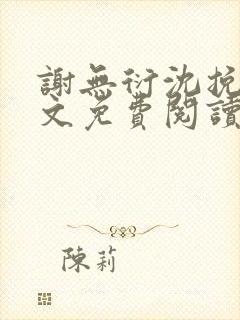 謝無衍沈挽
文免費閱讀
陳莉